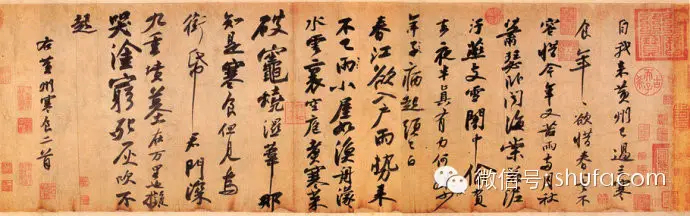 自我来黄州已過三寒
食年〻欲惜春春去不
容惜今年又苦雨兩月秋
蕭瑟卧聞海棠花泥
汙燕支雪闇中偷負
去夜半真有力何殊少
年子病起頭已白
春江欲入户雨勢来
不已雨小屋如漁舟濛〻
水雲裏空庖煮寒菜
破竈燒濕葦那
知是寒食但見烏
銜帋君門深
九重墳墓在万里也擬
哭塗窮死灰吹不
起
右黄州寒食二首
微信号: shufacom